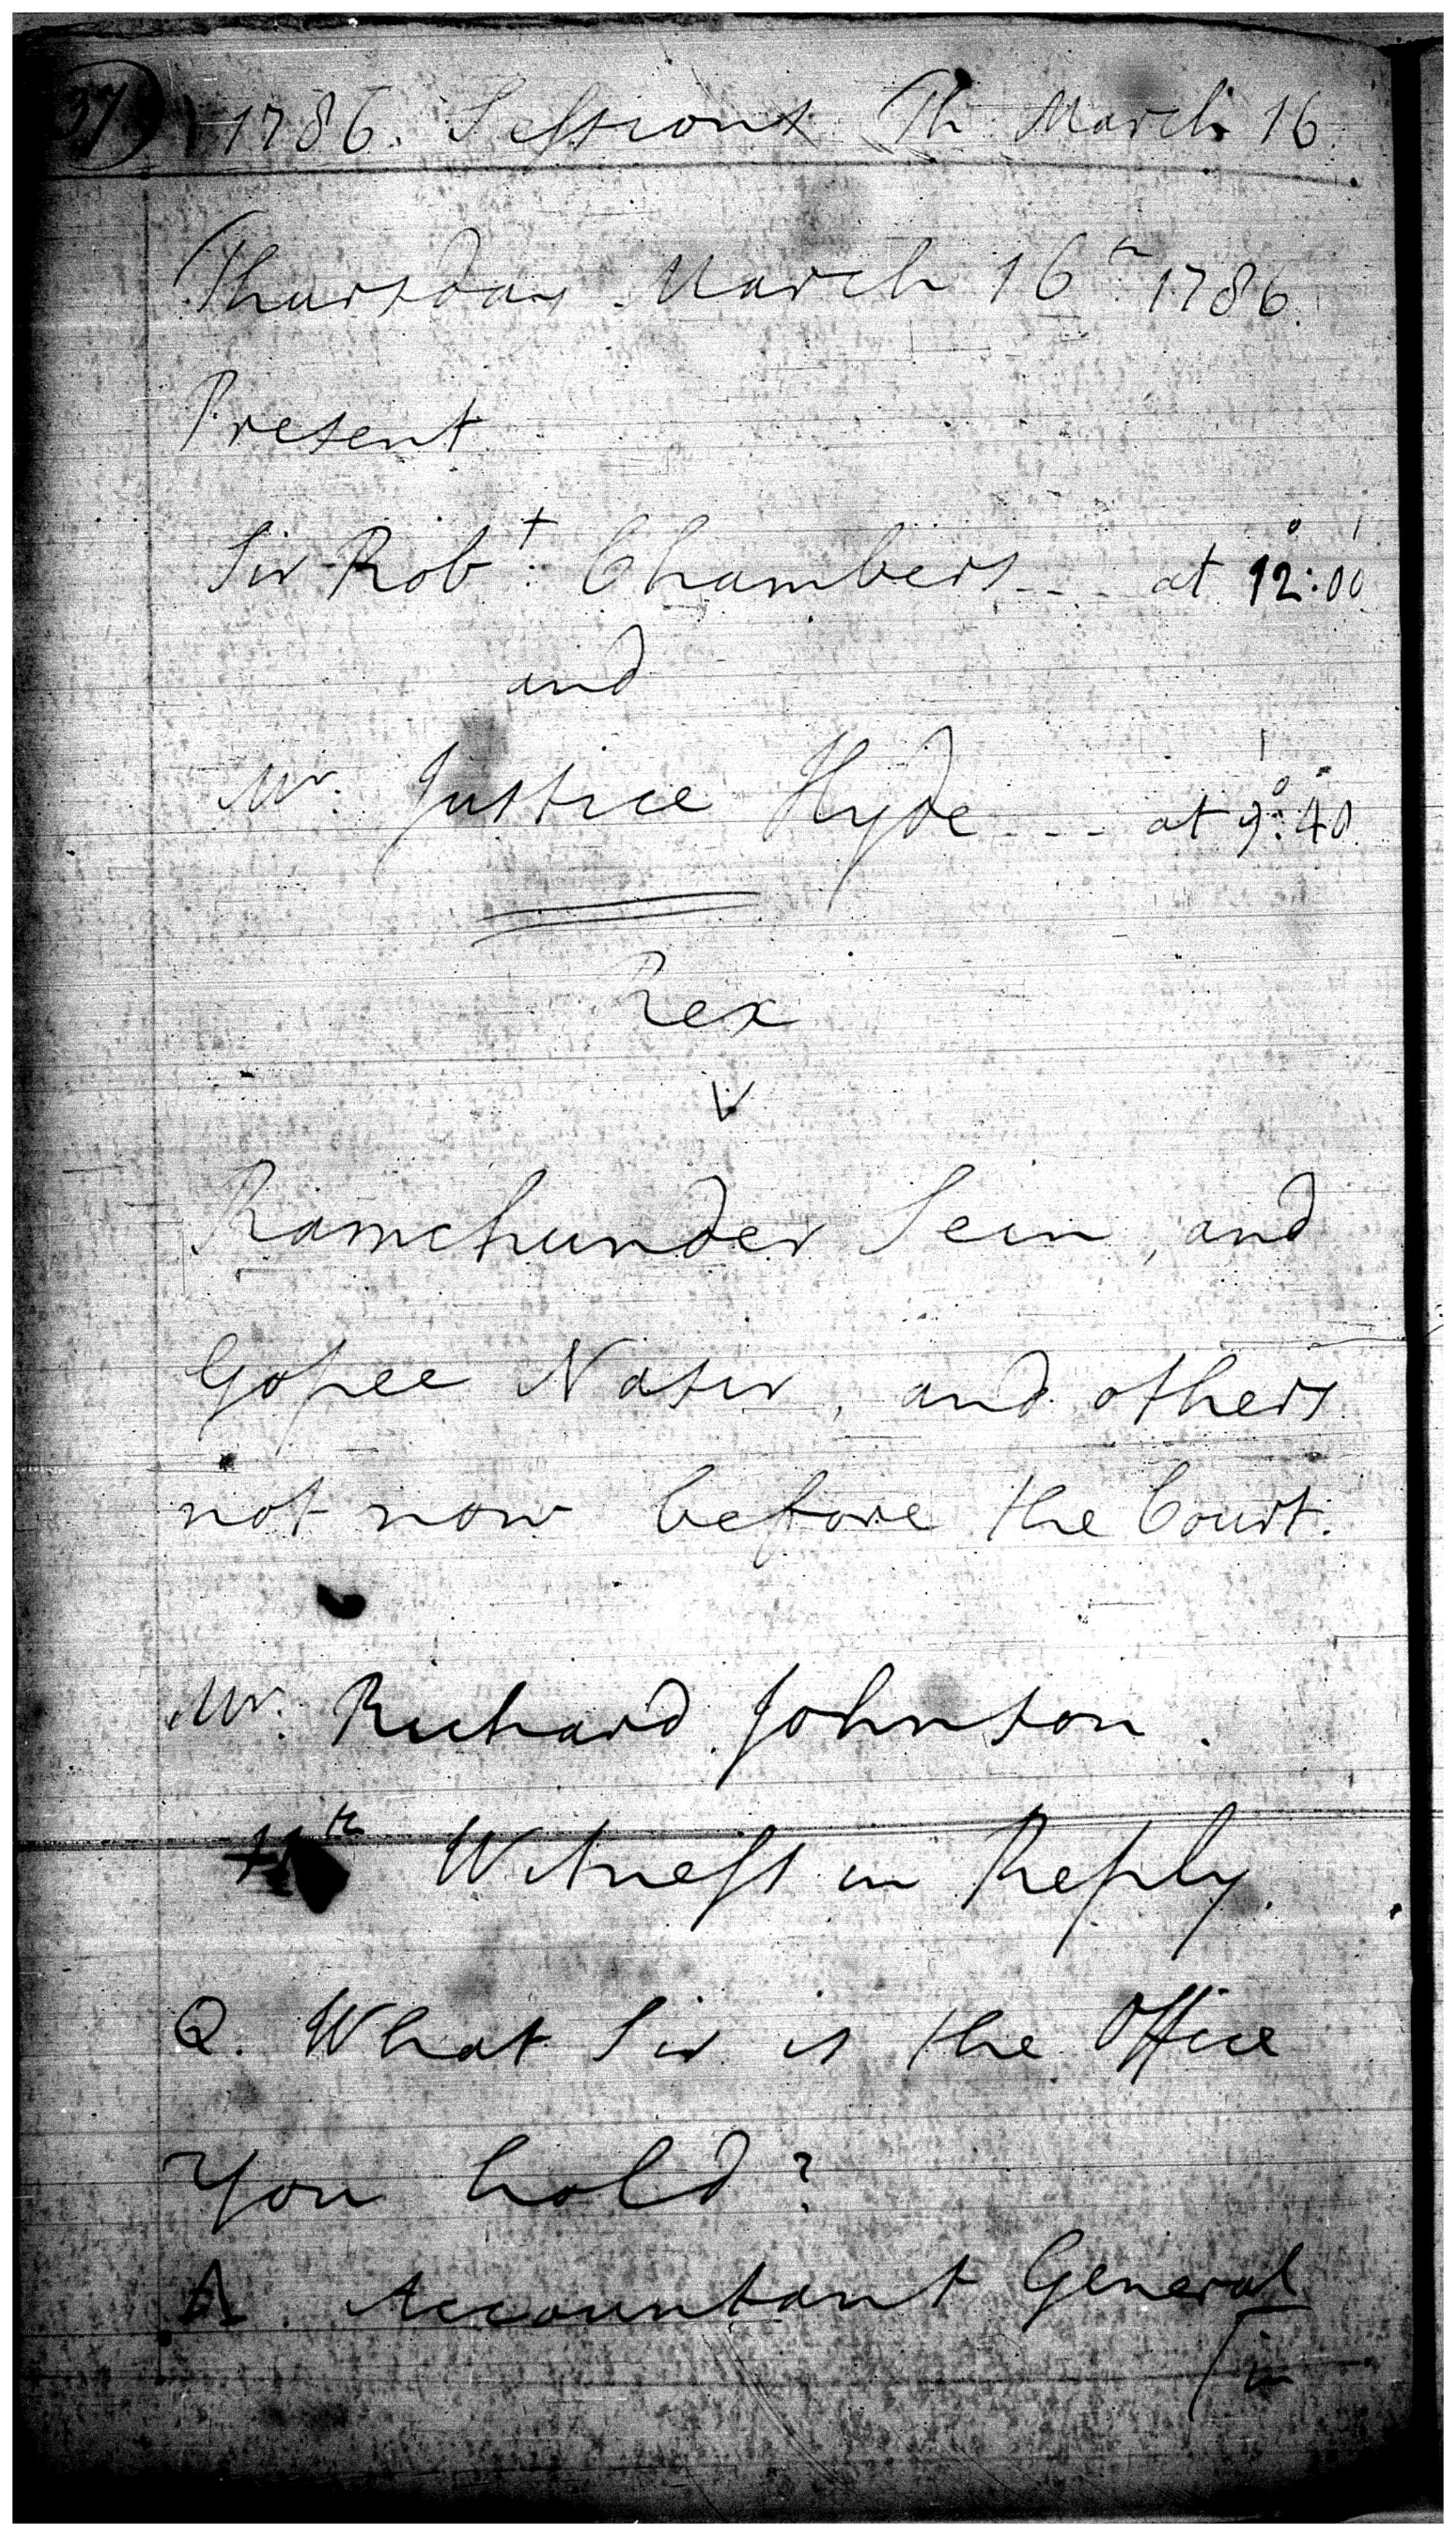 37 1786. Sessions Th March 16.
Thursday March 16th 1786.
Present
Sir Robt: Chambers --- at 12°:00'
and
Mr: Justice Hyde --- at 9°:40'
Rex
v
Ramchunder Sein, and
Gopee Nasir, and others
not now before the Court.
Mr: Richard Johnson.
Witness in Reply.
Q. What Sir is the Office
You hold?
A. Accountant General
/in